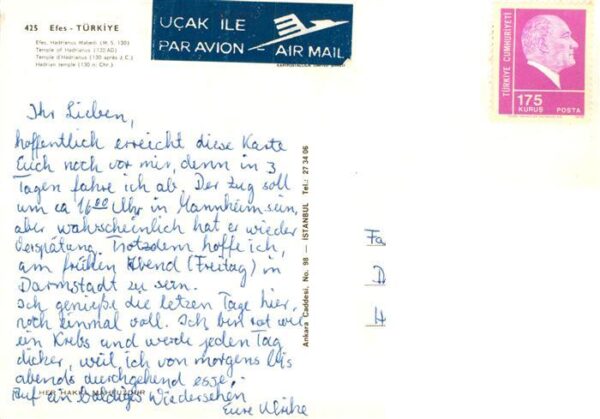 425 Efes - TÜRKİYE
Efes, Hadrianus Mabedi (M. S. 130)
Temple of Hadrianus (130 AD)
Temple d'Hadrianus (130 après J. C.)
Hadrian temple (130 n. Chr.)
UÇAK İLE
PAR AVION AIR MAIL
TÜRKİYE CUMHURİYETİ
175
KURUŞ POSTA
Ihr Lieben,
hoffentlich erreicht diese Karte
Euch noch vor mir, denn in 3
Tagen fahre ich ab. Der Zug soll
um ca 16⁰⁰ Uhr in Mannheim sein,
aber wahrscheinlich hat er wieder
Verspätung. Trotzdem hoffe ich,
am frühen Abend (Freitag) in
Darmstadt zu sein.
Ich genieße die letzen Tage hier,
noch einmal voll. Ich bin rot wie
ein Krebs und werde jeden Tag
dicker, weil ich von morgens bis
abends durchgehend esse.
Auf ein baldiges Wiedersehen
Eure Ulrike
HER HAKKI MAHFUZDUR
Ankara Caddesi, No. 98 — İSTANBUL Tel.: 27 34 06
Fa
D
H